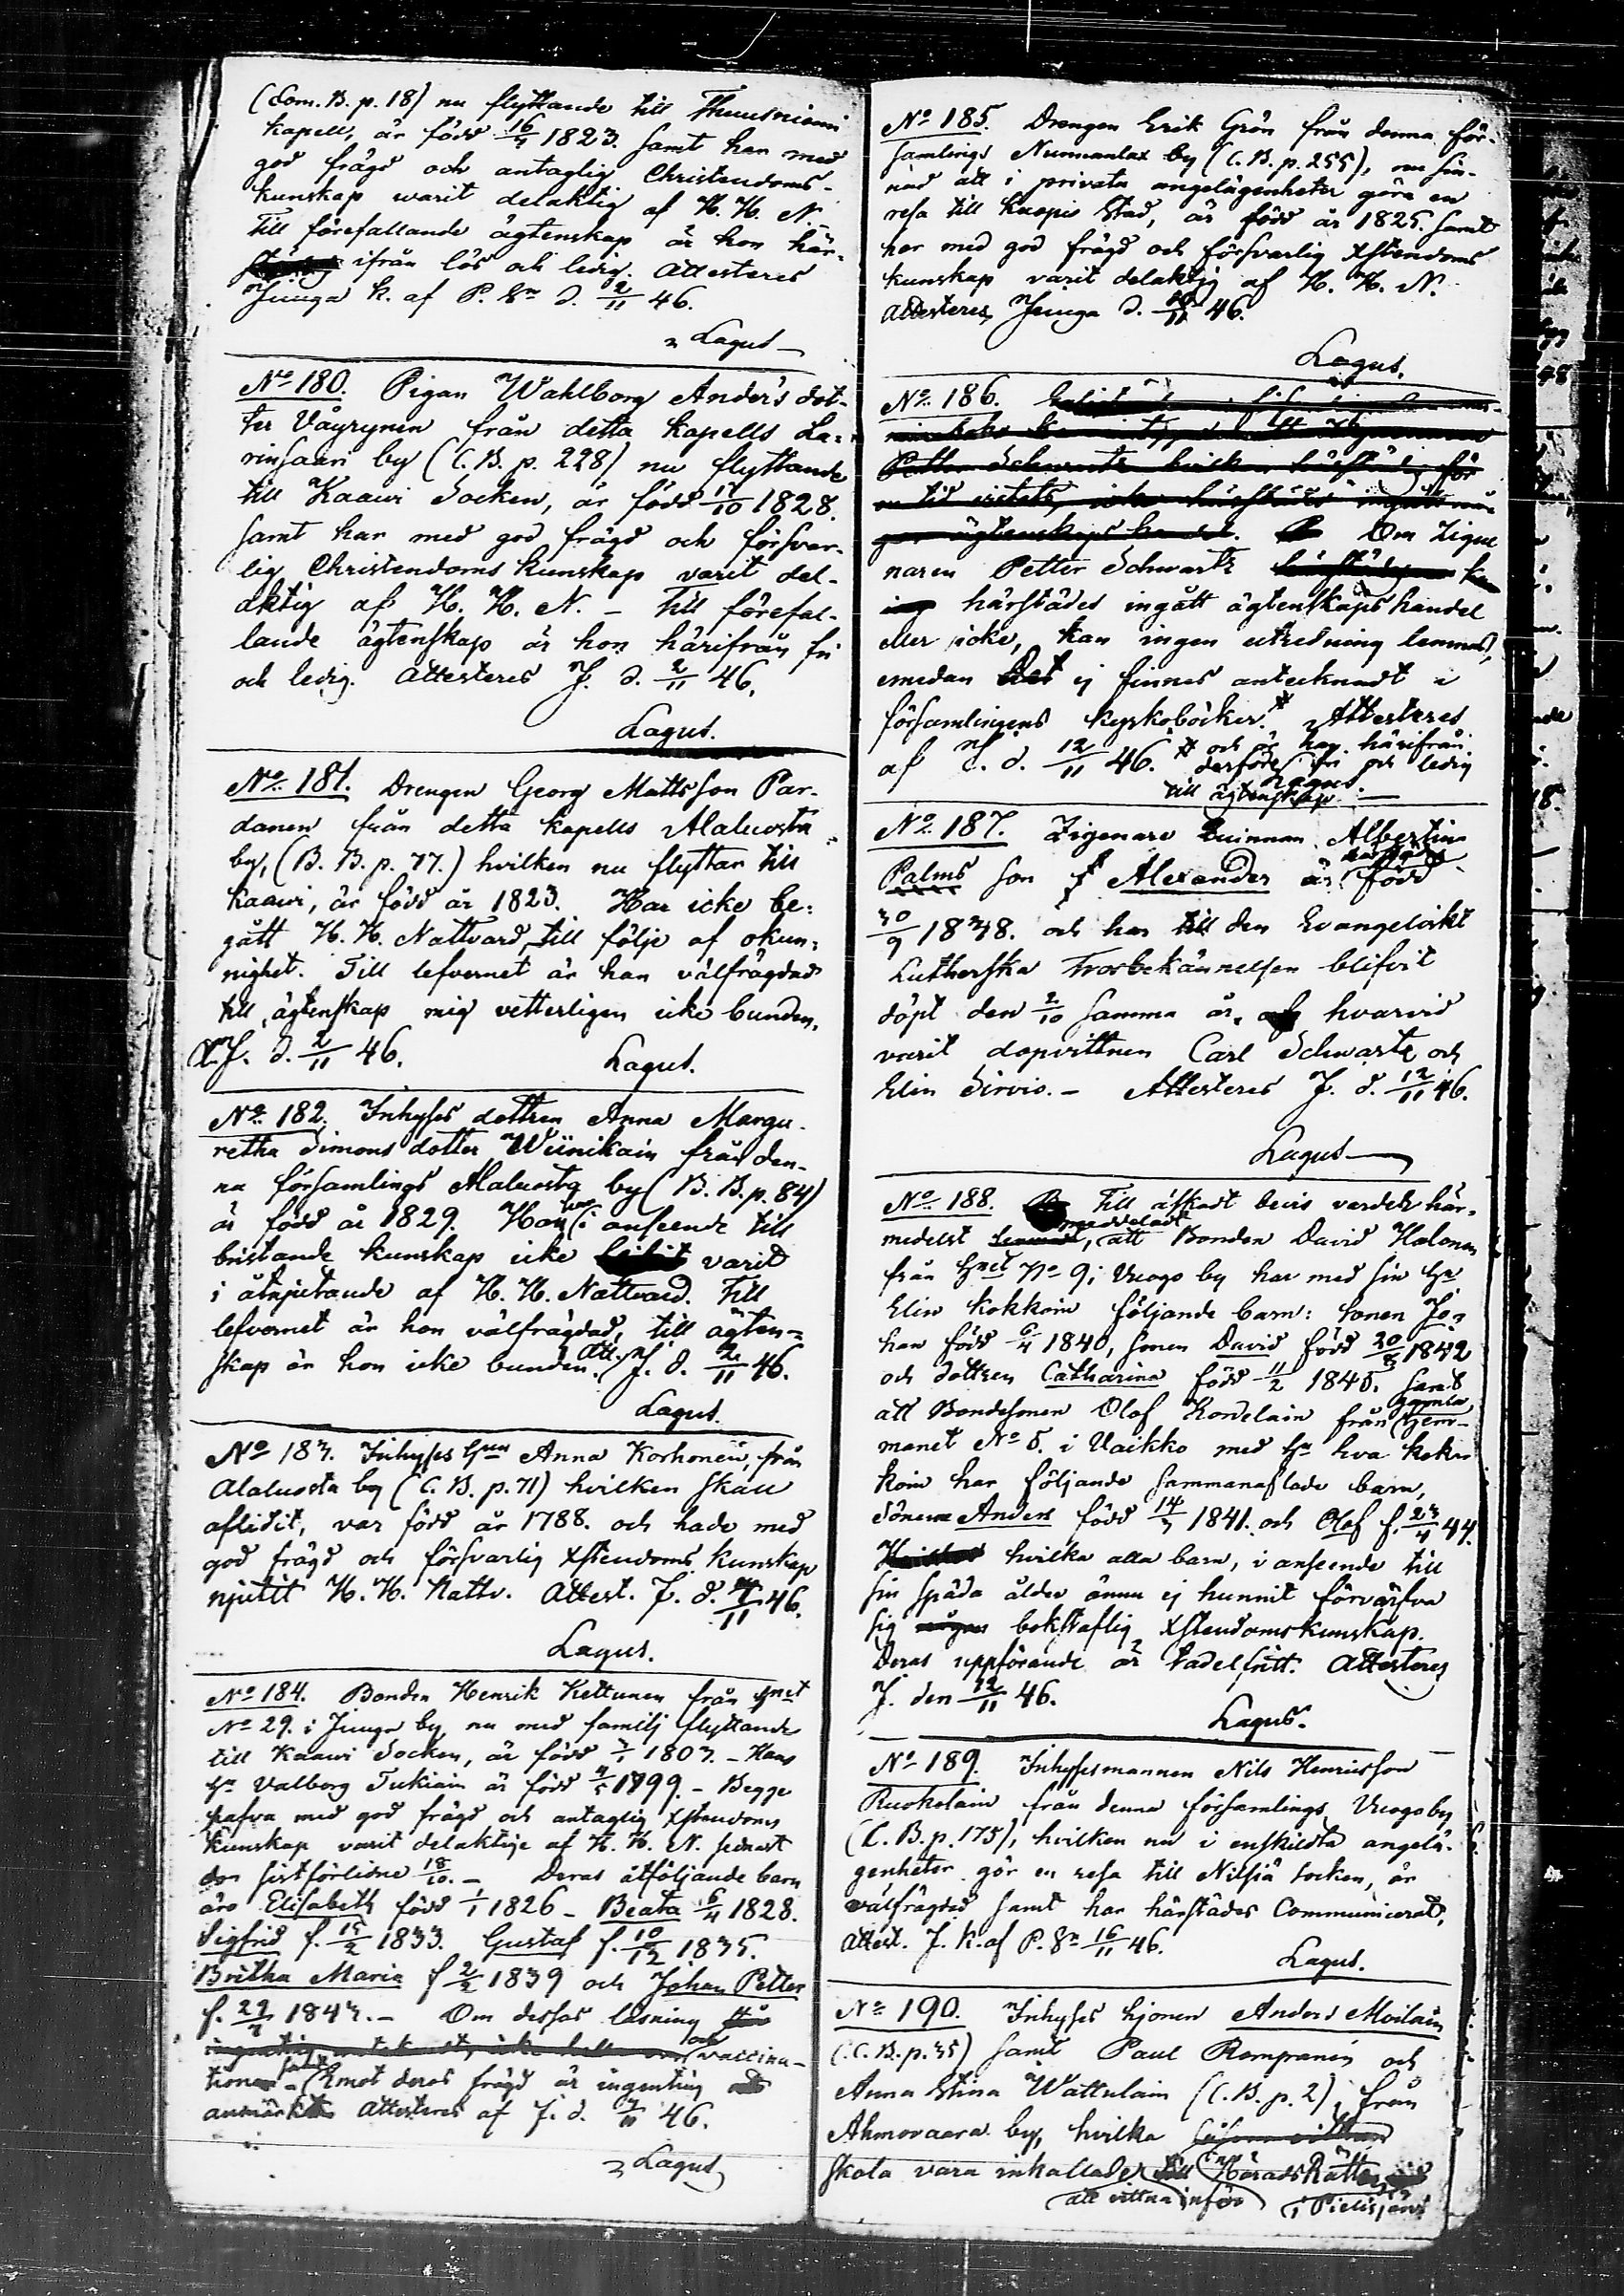 (Com. B. p. 18) nu flyttande till Thuusniemi
kapell, är född 16/4 1823. Samt har med
god frägd och antaglig Christendoms-
kunskap warit delaktig af H. H. N.
Till förefallande ägtenskap är hon här-
ifrån lös och ledig. Attesteres
Juuga k. af P. Sn d. 2/11 46.
Lagus
No 180. Pigan Wahlborg Anders dot-
ter Väyrynen från detta kapells La-
rinsaari by (C. B. p. 228) nu flyttande
till Kaawi Socken, är född 17/10 1828.
samt har med god frägd och försvar-
lig Christendoms kunskap varit del-
aktig af H. H. N. - Till förefal-
lande ägtenskap är hon härifrån fri
och ledig. Attesteres J. d. 2/11 46.
Lagus.
No 181. Drengen Georg Mattsson Par-
danen från detta kapells Alaluosta
by, (B. B. p. 77.) hvilken nu flyttar till
Kaawi, är född år 1823. Har icke be-
gått H. H. Nattvard, till följe af okun-
nighet. Till lefvernet är han välfrägdad
till ägtenskap mig vetterligen icke bunden.
A. J. d. 2/11 46. Lagus.
No 182. Inhyses dottren Anna Marga-
retha Simons dotter Wiinikain från den-
na församlings Alaluosta by (B. B. p. 84)
är född år 1829. Har i anseende till
bristande kunskap icke varit
i åtnjutande af H. H. Nattvard. Till
lefvernet är hon välfrägdad, till ägten-
skap är hon icke bunden. Att. J. d. 2/11 46.
Lagus.
No 183. Inhyses Hun Anna Korhonen, från
Alaluosta by (C. B. p. 71) hvilken skall
aflidit, var född år 1788. och hade med
god frägd och försvarlig Xstendoms kunskap
njutit H. H. Nattv. Attest. J. d. /11 46.
Lagus.
No 184. Bonden Henrik Kettunen från Hnet
No 29. i Juuga by, nu med familj flyttande
till Kaawi Socken, är född 3/1 1803. - Hans
Hu Valborg Tukiain är född 4/5 1799. - Begge
hafva med god frägd och antaglig Xstendoms
kunskap varit delaktige af H. H. N. senast
den sistförlidne 18/10. - Deras åtföljande barn
äro Elisabeth född 1/1 1826 - Beata 6/4 1828.
Sigfrid f. 15/2 1833. Gustaf f. 10/12 1835.
Britha Maria f 2/2 1839 och Johan Petter
f. 29/7 1843. - Om dessas läsning
och vaccina-
tion - Emot deras frägd är ingenting
anmärkt Attesteres af J. d. 46.
Lagus
No 185. Drengen Erik Grön från denna för-
samlings Nunnanlax by (C. B. p. 255), nu sin-
nad att i privata angelägenheter göra en
resa till Kuopio stad, är född år 1825. samt
har med god frägd och försvarlig Xstendoms
kunskap varit delaktig af H. H. N.
Attesteres, Juuga d. 46.
Lagus.
No 186.
Petter Schwartz hvilken härstädes för
en tid vistats, icke härstädes ingått nå-
gon ägtenskaps handel. Om Zigue
naren Petter Schwartz
härstädes ingått ägtenskaps handel
eller icke, kan ingen utredning lemnas,
emedan det ej finnes antecknadt i
församlingens kyrkoböcker. # Attesteres
af J. d. 12/11 46. # och är han härifrån
derföre fri och ledig
till ägtenskap. Lagus.
No 187. Zigenare Quinnan Albertina
Palms son Alexander är härstädes född
30/9 1838. och har till den Evangeliskt
Lutherska Trosbekännelsen blifvit
döpt den 2/10 samma år, hvarvid
varit dopvittnen Carl Schwartz och
Elin Sirvio. - Attesteres J. d. 12/11 46.
Lagus
No 188. Till äskadt bevis varder här-
medelst meddeladt, att Bonden David Halonen
från Hnet No 9 i Vuogo by har med sin Hu
Elin Kokkoin följande barn: sonen Jo-
han född 6/4 1840, sonen David född 20/8 1842
och dottren Catharina född 11/2 1845. samt
att Bondesonen Olof Kondelain från gamla Hem-
manet No 8. i Vaikko med Hu Eva Kokko
koin har följande sammanaflade barn,
sönerne Anders född 14/3 1841. och Olof f. 23/4 44.
hvilka alla barn, i anseende till
sin späda ålder ännu ej hunnit förvärfva
sig någon bokstaflig Xstendomskunskap.
Deras uppförande är tadelfritt. Attesteres
J. den 12/11 46.
Lagus.
No 189. Inhysesmannen Nils Henricsson
Ruokolain från denna församlings Vuogo by,
(C. B. p. 175), hvilken nu i enskildta angelä-
genheter gör en resa till Nilsiä socken, är
välfrägdad samt har härstädes Communicerat.
Attest. J. K. af P. Sn 16/11 46.
Lagus.
No 190. Inhyses hjonen Anders Moilain
(C. B. p. 35) samt Paul Rompanen och
Anna Stina Wattulain (C. B. p. 2), från
Ahmovaara by, hvilka såsom vittnen
skola vara inkallade till HäradsRätten
att vittna inför i Pielisjärvi